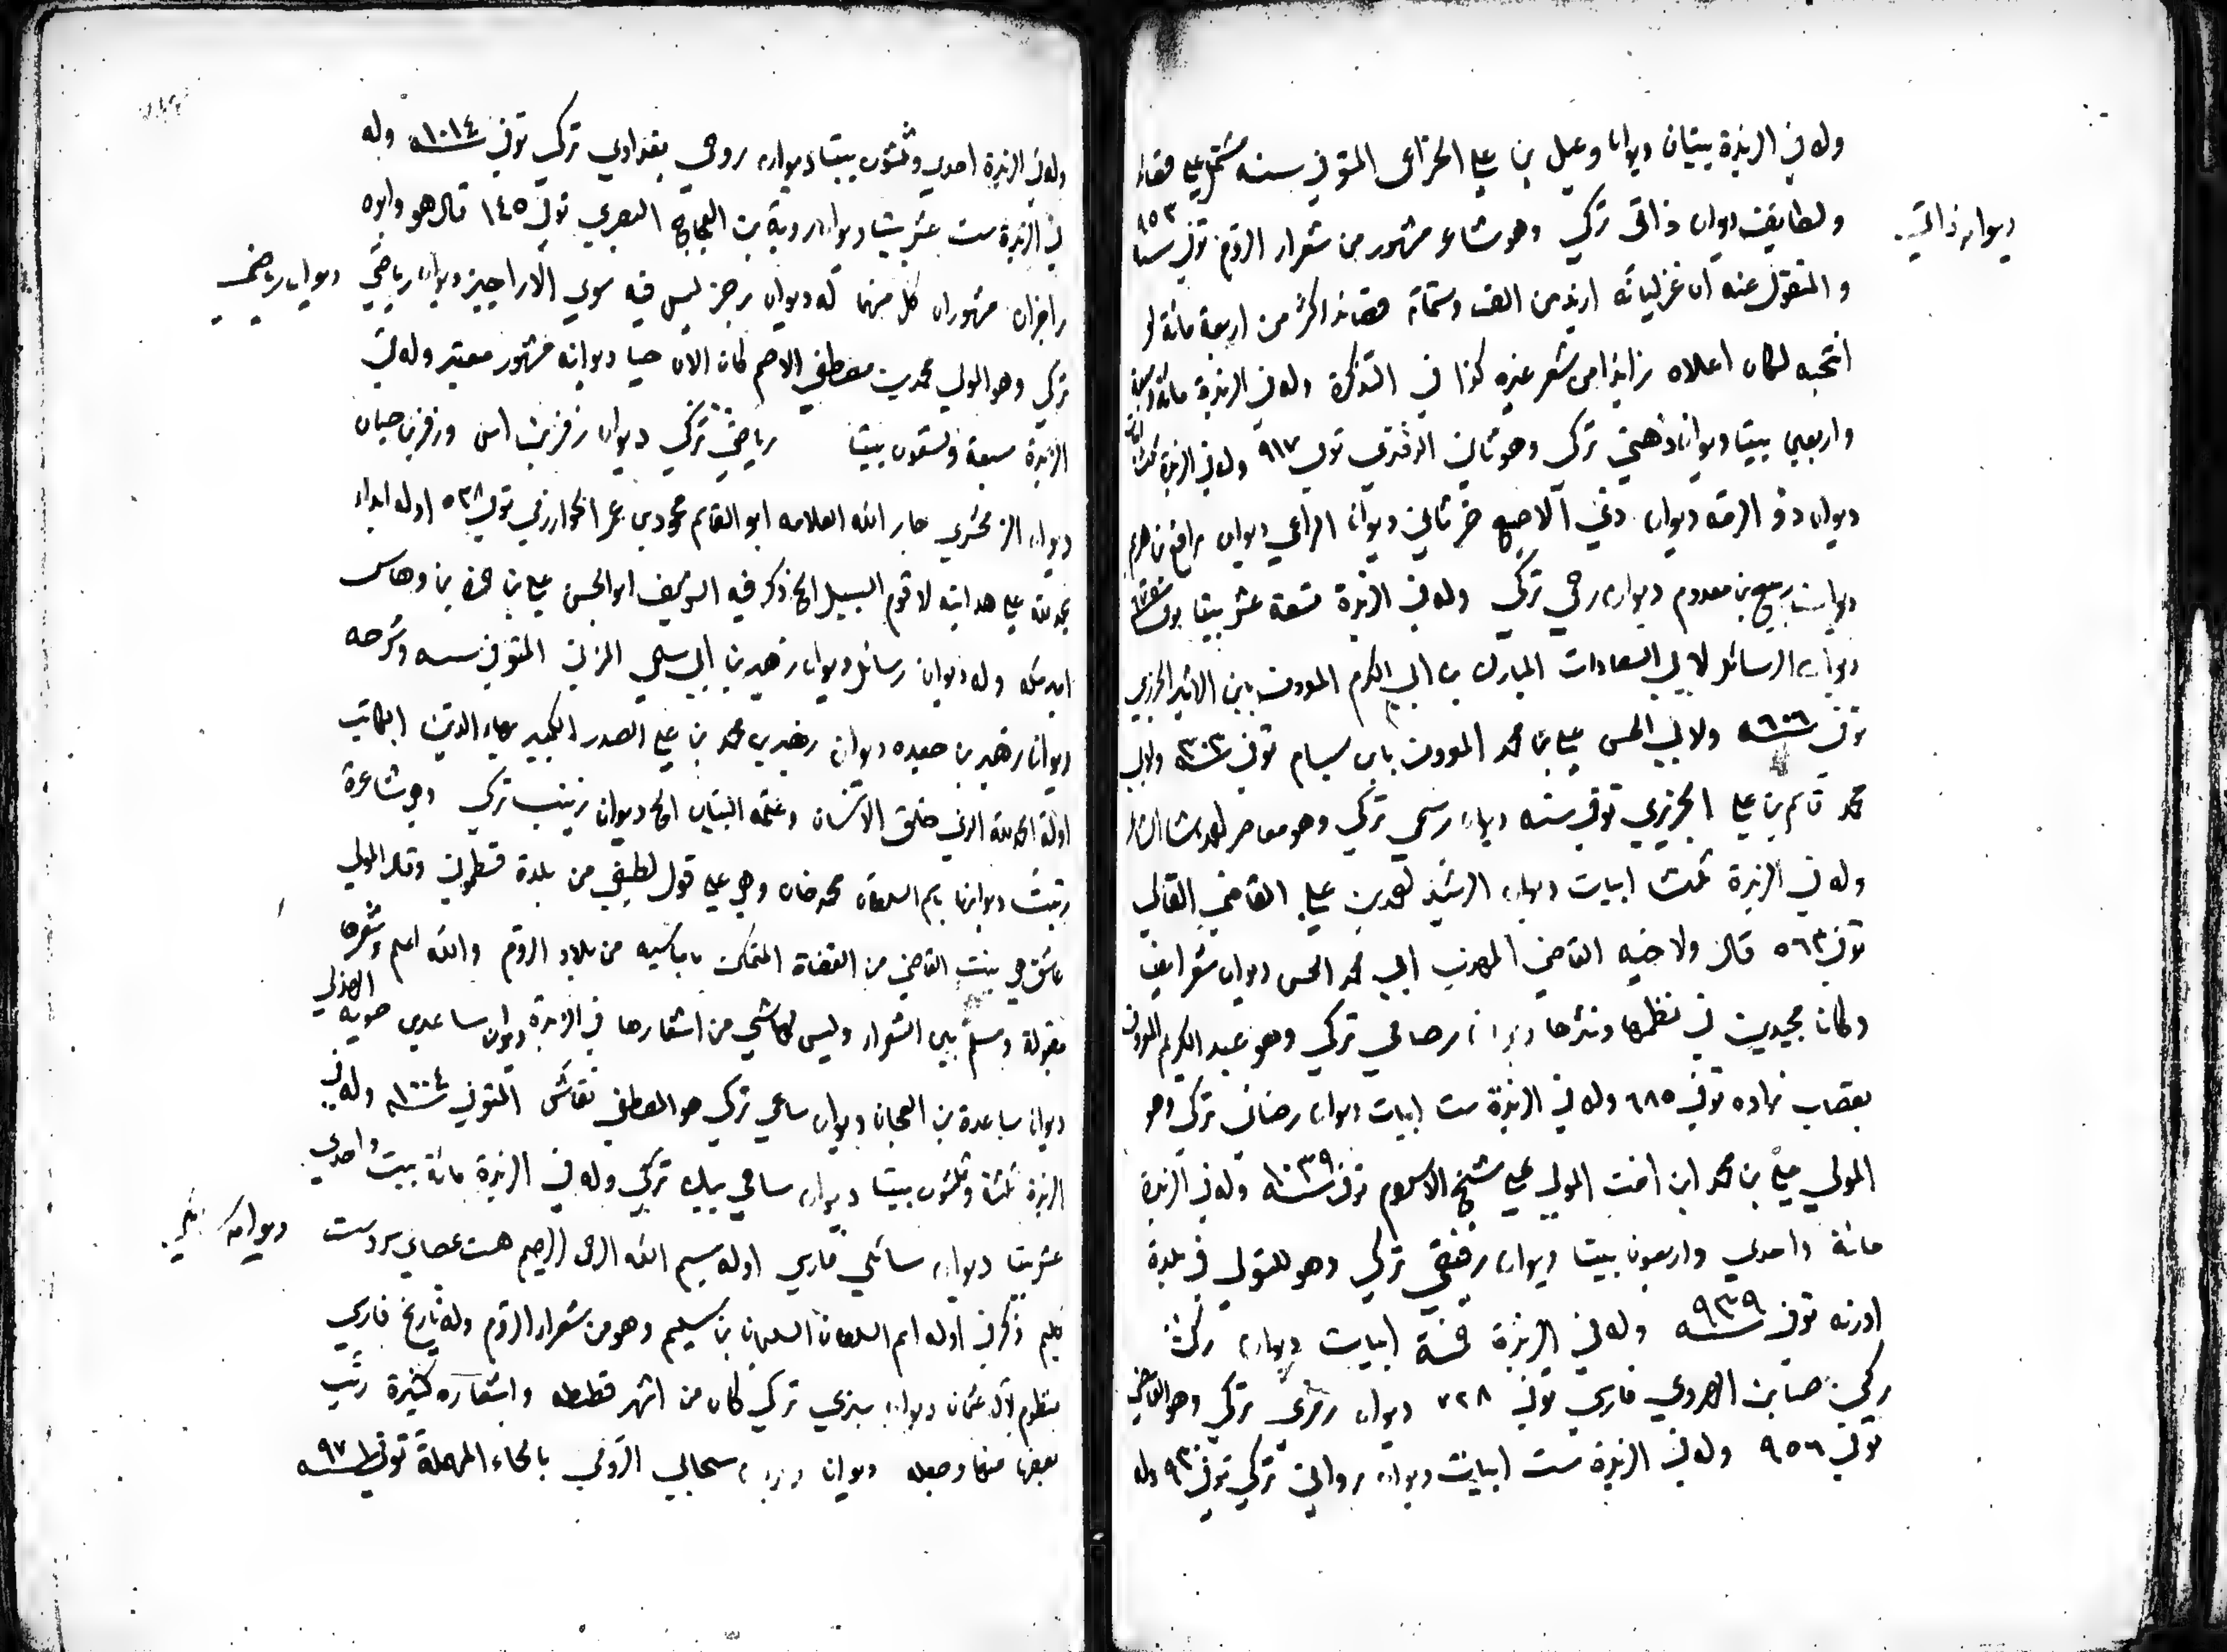 وله في الزبدة بيتان ديوان دعبل بن علي الخزاعي المتوفى سنة مشتمل على قصائد
ولطايف ديوان ذاتي تركي وهو شاعر مشهور من شعراء الروم توفي سنة ٩٥٣
ديوان ذاتي
والمنقول عنه ان غزلياته ازيد من الف وستمائة وقصائد اكثر من اربعة مائة لو
انتخبه لكان اعلاه زائدا من شعر غيره كذا في التذكرة وله في الزبدة مائة
واربعين بيتا ديوان ذهني تركي وهو ثاني توفي ٩١٧ وله في الزبدة ثلث ابيات
ديوان ذو الرمة ديوان ذي الاصبع ديوان الراعي ديوان رافع بن هريم
ديوان ربيع بن معدوم ديوان رحمي تركي وله في الزبدة تسعة عشر بيتا
ديوان الرسائل لابي السعادات المبارك بن ابي الكرم المعروف بابن الاثير الجزري
توفي سنة ٦٠٦ ولابي الحسن علي بن محمد المعروف بابن بسام توفي سنة ٣٠٣ ولابي
محمد قاسم بن علي الحريري توفي سنة ديوان رسمي تركي وهو معاصر لاحمد پاشا
وله في الزبدة ثلث ابيات ديوان الرشيد احمد بن علي القاضي
توفي ٥٦٣ قال ولاخيه القاضي المهذب ابي محمد الحسن ديوان شعر ايضا
وكانا مجيدين في نظمها ونثرها ديوان رضائي تركي وهو عبد الكريم المعروف
بقصاب زاده توفي ٩٨٥ وله في الزبدة ست ابيات ديوان رضائي تركي وهو
المولى علي بن محمد ابن اخت المولى شيخ الاسلام توفي سنة ١٠٣٩ وله في الزبدة
مائة واحدى واربعون بيتا ديوان رفيقي تركي وهو المتولي في بلدة
ادرنه توفي سنة ٩٣٩ وله في الزبدة خمسة ابيات ديوان ركن
ركن صاين الهروي فارسي توفي ٧٢٨ ديوان رمزي تركي وهو القاضي
توفي ٩٥٦ وله في الزبدة ست ابيات ديوان رواني تركي توفي ٩٣٠ وله
وله في الزبدة احدى وثلثون بيتا ديوان روحي بغدادي تركي توفي سنة ١٠١٤ وله
في الزبدة ست عشر بيتا ديوان روبة بن العجاج البصري توفي ١٤٥ قال هو وابوه
راجزان مشهوران كل منهما له ديوان رجز ليس فيه سوى الاراجيز ديوان رياضي
ديوان رياضي
تركي وهو المولى محمد بن مصطفى الاصم كان الان حيا ديوانه مشهور معتبر وله في
الزبدة سبعة وتسعون بيتا رياضي تركي ديوان زفر بن انس وزفر بن حيان
ديوان الزمخشري جار الله العلامه ابو القاسم محمود بن عمر الخوارزمي توفي ٥٣٨ اوله ابداء
بحمد لله على هدايته لاقوم السبيل الخ ذكر فيه الشريف ابو الحسن علي بن حمزة بن وهاس
امير مكة وله ديوان رسائل ديوان زهير بن ابي سلمى المزني المتوفى سنة وشرحه
ديوان زهير بن جعيده ديوان زهير بن محمد بن علي الصدر الكبير بهاء الدين الكاتب
اوله الحمد لله الذي خلق الانسان وعلمه البيان الخ ديوان زينب تركي وهي شاعرة
رتبت ديوانها باسم السلطان محمد خان وهي على قول لطيفي من بلدة قسطموني وقال المولى
عاشق هي بنت القاضي من القضاة المتمكن باماسيه من بلاد الروم والله اعلم وشعرها
مقبولة ومسلم بين الشعراء وليس لها شيء من اشعارها في الزبدة ديوان ساعد بن جوية الهذلي
ديوان ساعدة بن العجلان ديوان ساعي تركي هو المصطفى نقاش المتوفى سنة ١٠٠٤ وله في
الزبدة ثلثة وثلثون بيتا ديوان سامي بيك تركي وله في الزبدة مائة بيت واحدى
عشر بيتا ديوان سائلي فارسي اوله بسم الله الرحمن الرحيم هست عصاي سر دست
كليم ذكر في اوله اسم السلطان السليمان بن سليم وهو من شعراء الروم وله تاريخ فارسي
منظوم لآل عثمان ديوان سبزي تركي كان من اشهر واشعاره كثيرة رتب
بعضها منها وجعله ديوانا ديوان سحابي الرومي بالحاء المهملة توفي سنة ٩٧